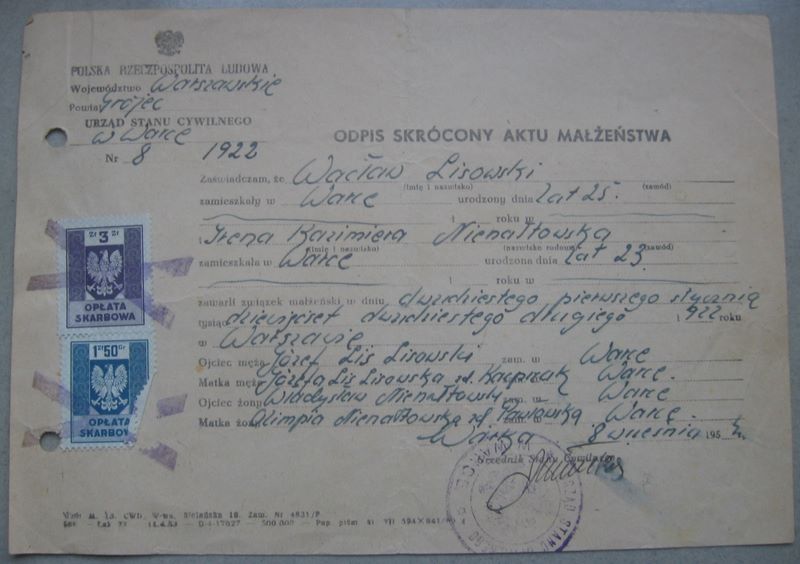 POLSKA RZECZPOSPOLITA LUDOWA
Województwo Warszawskie
Powiat Grójec
URZĄD STANU CYWILNEGO
w Warce
Nr 8 1922
ODPIS SKRÓCONY AKTU MAŁŻEŃSTWA
Zaświadczam, że Wacław Lisowski
(imię i nazwisko) (zawód)
zamieszkały w Warce urodzony dnia lat 25
i roku w
i Irena Kazimiera Nienałtowska
(imię i nazwisko) (nazwisko rodowe) (zawód)
zamieszkała w Warce urodzona dnia lat 23
i roku w
zawarli związek małżeński w dniu dwudziestego pierwszego stycznia
tysiąc dziewięćset dwudziestego drugiego i 922 roku
w Warszawie
Ojciec męża Józef Lis Lisowski zam. w Warce
Matka męża Józefa Lis Lisowska zd. Kacprzak Warce
Ojciec żony Władysław Nienałtowski zam. w Warce
Matka żony Olimpia Nienałtowska zd. Pawłowska zam. w Warce
Warka 8 września 195
Urzędnik Stanu Cywilnego
Zł 3 Zł
OPŁATA
SKARBOWA
1 Zł 50 Gr
OPŁATA
SKARBOW
URZĄD STANU
Zam. Nr 4831/P
11.4.53 500.000